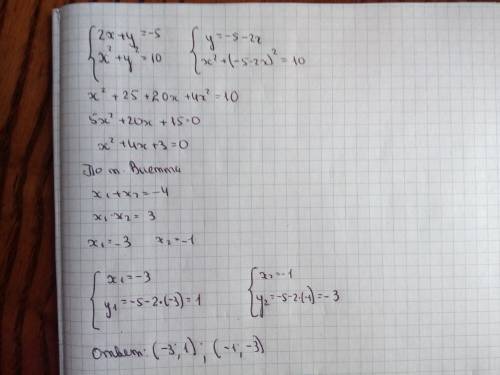 {2x+y=-5 {y=-5-2x
{x²+y²=10 {x²+(-5-2x)²=10
x²+25+20x+4x²=10
5x²+20x+15=0
x²+4x+3=0
По т. Виетта
x₁+x₂=-4
x₁·x₂=3
x₁=-3 x₂=-1
{x₁=-3 {x₂=-1
{y₁=-5-2·(-3)=1 {y₂=-5-2·(-1)=-3
Ответ: (-3; 1); (-1; -3)